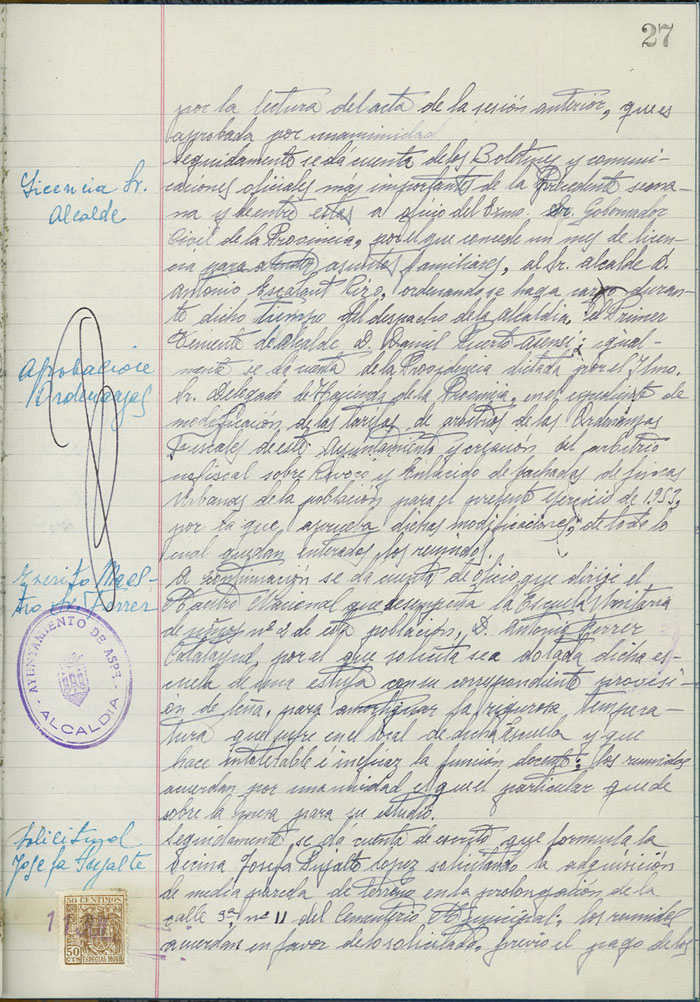 27
por la lectura del acta de la sesión anterior, que es
aprobada por unanimidad.
Seguidamente se dá cuenta de los Boletines y comuni-
caciones oficiales más importantes de la Precedente sema-
na y de entre estas a oficio del Exmo. Sr. Gobernador
Civil de la Provincia, por el que concede un mes de licen-
cia para asuntos familiares, al Sr. Alcalde D.
Antonio Escalant Pizo, ordenando se haga cargo duran-
te dicho tiempo del despacho de la Alcaldía, el Primer
Teniente de Alcalde D. Daniel Puerto Asensi; igual-
mente se da cuenta de la Providencia dictada por el Ilmo.
Sr. Delegado de Hacienda de la Provincia, en el expediente de
modificación de las tarifas de arbitrios de las Ordenanzas
Fiscales de este Ayuntamiento y creación del arbitrio
no fiscal sobre Revoco y Enlucido de fachadas de fincas
Urbanas de la población para el presente ejercicio de 1.953,
por la que aprueba dichas modificaciones; de todo lo
cual quedan enterados los reunidos.
A continuación se da cuenta de oficio que dirige el
Maestro Nacional que desempeña la Escuela Unitaria
de niños nº 2 de esta población, D. Antonio Ferrer
Calatayud por el que solicita sea dotada dicha es-
cuela de una estufa con su correspondiente provisi-
ón de leña, para amortiguar la rigurosa tempera-
tura que sufre en el local de dicha Escuela y que
hace intoletable é ineficaz la función docente; los reunidos
acuerdan por unanimidad el que el particular quede
sobre la mesa para su estudio.
Seguidamente se dá cuenta de escrito que formula la
vecina Josefa Pujalte Lopez solicitando la adquisición
de media parcela de terreno en la prolongación de la
calle 3ª nº 11 del Cementerio Municipal; los reunidos
acuerdan en favor de lo solicitado, previo el pago de los
Licencia Sr.
Alcalde
Aprobacion
Ordenanzas
Escrito Maes-
tro Sr. Ferrer
AYUNTAMIENTO DE ASPE
ALCALDIA
Solicitud
Josefa Pujalte
50 CENTIMOS
50
CTS
ESPECIAL MOVIL